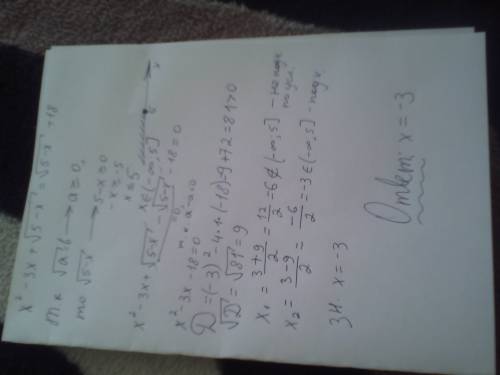 x² - 3x + √5-x = √5-x + 18
т.к √a = b → a ≥ 0,
то √5-x → 5-x ≥ 0
-x ≥ -5
x ≤ 5
x
x ∈ (-∞; 5]
x² - 3x + √5-x - √5-x - 18 = 0
= 0,
т.к. a - a = 0
x² - 3x - 18 = 0
D = (-3)² - 4·1·(-18) = 9 + 72 = 81 > 0
√D = √81 = 9
x₁ = 3+9/2 = 12/2 = 6 ∉ (-∞; 5] - не подх
x₂ = 3-9/2 = -6/2 = -3 ∈ (-∞; 5] - подх.
Зн. x = -3
Ответ: x = -3